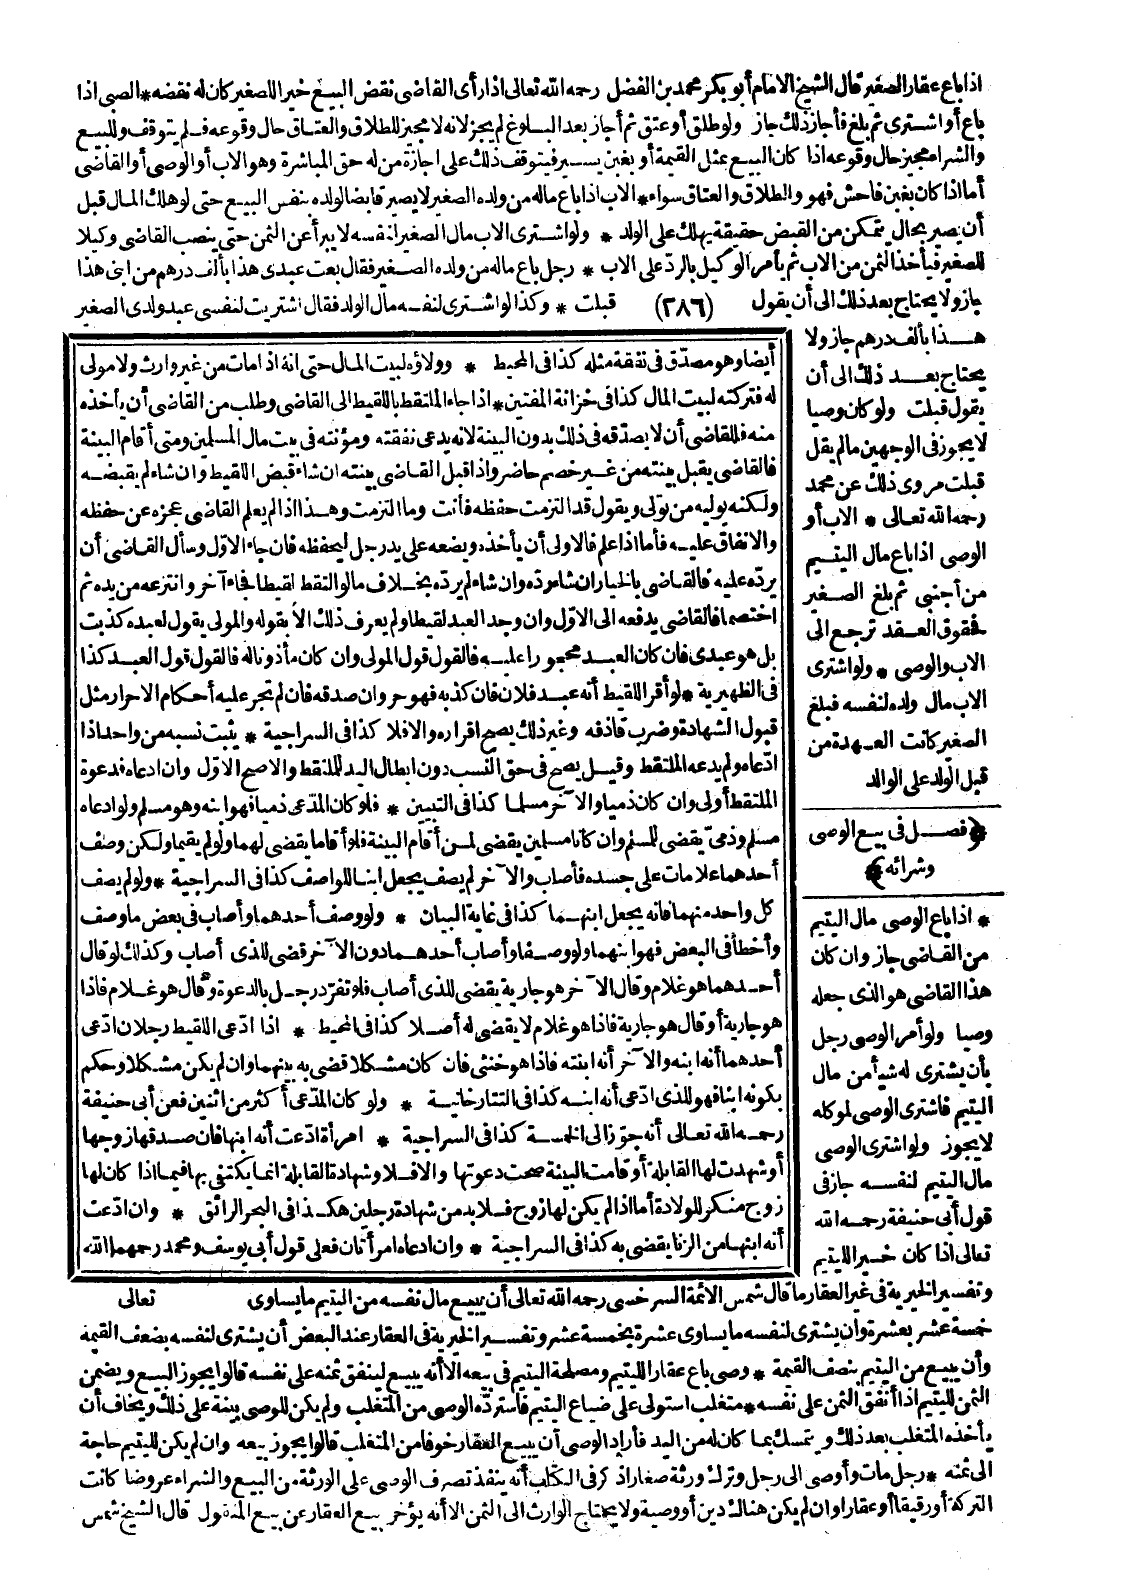 اذا باع عقار الصغير قال الشيخ الامام أبو بكر محمد بن الفضل رحمه الله تعالى اذا رأى القاضى نقض البيع خيرا للصغير كان له نقضه * الصبى اذا
باع أو اشترى ثم بلغ فأجاز ذلك جاز ولو طلق أو عتق ثم أجاز بعد البلوغ لم يجز لانه لا مجيز للطلاق والعتاق حال وقوعه فلم يتوقف وللبيع
والشراء مجيز حال وقوعه اذا كان البيع بمثل القيمة أو بغبن يسير فيتوقف ذلك على اجازة من له حق المباشرة وهو الاب أو الوصى أو القاضى
أما اذا كان بغبن فاحش فهو والطلاق والعتاق سواء * الاب اذا باع ماله من ولده الصغير لا يصير قابضا لولده بنفس البيع حتى لو هلك المال قبل
أن يصير بحال يتمكن من القبض حقيقة يهلك على الولد * ولو اشترى الاب مال الصغير لنفسه لا يبرأ عن الثمن حتى ينصب القاضى وكيلا
للصغير فيأخذ الثمن من الاب ثم يأمر الوكيل بالرد على الاب * رجل باع ماله من ولده الصغير فقال بعت عبدى هذا بألف درهم من ابنى هذا
جاز ولا يحتاج بعد ذلك الى أن يقول (٢٨٦) قبلت * وكذا لو اشترى لنفسه مال الولد فقال اشتريت لنفسى عبد ولدى الصغير
هذا بألف درهم جاز ولا
يحتاج بعد ذلك الى أن
يقول قبلت ولو كان وصيا
لا يجوز فى الوجهين مالم يقل
قبلت مروى ذلك عن محمد
رحمه الله تعالى * الاب أو
الوصى اذا باع مال اليتيم
من أجنبى ثم بلغ الصغير
فحقوق العقد ترجع الى
الاب والوصى * ولو اشترى
الاب مال ولده لنفسه فبلغ
الصغير كانت العهدة من
قبل الولد على الوالد
﴿ فصل فى بيع الوصى
وشرائه ﴾
* اذا باع الوصى مال اليتيم
من القاضى جاز وان كان
هذا القاضى هو الذى جعله
وصيا ولو أمر الوصى رجل
بأن يشترى له شيأ من مال
اليتيم فاشترى الوصى لموكله
لا يجوز ولو اشترى الوصى
مال اليتيم لنفسه جاز فى
قول أبى حنيفة رحمه الله
تعالى اذا كان خير لليتيم
أيضا وهو مصدّق فى نفقة مثله كذا فى المحيط * وولاؤه لبيت المال حتى انه اذا مات من غير وارث ولا مولى
له فتركته لبيت المال كذا فى خزانة المفتين * اذا جاء الملتقط باللقيط الى القاضى وطلب من القاضى أن يأخذه
منه فللقاضى أن لا يصدّقه فى ذلك بدون البينة لانه يدعى نفقته ومؤنته فى بيت مال المسلمين ومتى أقام البينة
فالقاضى يقبل بينته من غير خصم حاضر واذا قبل القاضى بينته ان شاء قبض اللقيط وان شاء لم يقبضه
ولكنه يوليه من تولى ويقول قد التزمت حفظه فأنت وما التزمت وهذا اذا لم يعلم القاضى عجزه عن حفظه
والانفاق عليه فأما اذا علم فالاولى أن يأخذه ويضعه على يد رجل ليحفظه فان جاء الاوّل وسأل القاضى أن
يردّه عليه فالقاضى بالخيار ان شاء ردّه وان شاء لم يردّه بخلاف ما لو التقط لقيطا فجاء آخر وانتزعه من يده ثم
اختصما فالقاضى يدفعه الى الاوّل وان وجد العبد لقيطا ولم يعرف ذلك الا بقوله والمولى يقول لعبده كذبت
بل هو عبدى فان كان العبد محجورا عليه فالقول قول المولى وان كان مأذونا له فالقول قول العبد كذا
فى الظهيرية * لو أقر اللقيط أنه عبد فلان فان كذبه فهو حر وان صدقه فان لم تجر عليه أحكام الاحرار مثل
قبول الشهادة وضرب قاذفه وغير ذلك يصح اقراره والا فلا كذا فى السراجية * يثبت نسبه من واحد اذا
ادّعاه ولم يدعه الملتقط وقيل يصح فى حق النسب دون ابطال اليد للملتقط والاصح الاوّل وان ادعاه فدعوة
الملتقط أولى وان كان ذميا والآخر مسلما كذا فى التبيين * فلو كان المدّعى ذميا فهو ابنه وهو مسلم ولو ادعاه
مسلم وذمىّ يقضى للمسلم وان كانا مسلمين يقضى لمن أقام البينة فلو أقاما يقضى لهما ولو لم يقيما ولكن وصف
أحدهما علامات على جسده فأصاب والآخر لم يصف يجعل ابنا للواصف كذا فى السراجية * ولو لم يصف
كل واحد منهما فانه يجعل ابنهما كذا فى غاية البيان * ولو وصف أحدهما وأصاب فى بعض ما وصف
وأخطأ فى البعض فهو ابنهما ولو وصفا وأصاب أحدهما دون الآخر قضى للذى أصاب وكذلك لو قال
أحدهما هو غلام وقال الآخر هو جارية يقضى للذى أصاب فلو تفرّد رجل بالدعوة وقال هو غلام فاذا
هو جارية أو قال هو جارية فاذا هو غلام لا يقضى له أصلا كذا فى المحيط * اذا ادّعى اللقيط رجلان ادّعى
أحدهما أنه ابنه والآخر أنه ابنته فاذا هو خنثى فان كان مشكلا قضى به بينهما وان لم يكن مشكلا وحكم
بكونه ابنا فهو للذى ادّعى أنه ابنه كذا فى التتارخانية * ولو كان المدّعى أكثر من اثنين فعن أبى حنيفة
رحمه الله تعالى أنه جوّز الى الخمسة كذا فى السراجية * امرأة ادّعت أنه ابنها فان صدقها زوجها
أو شهدت لها القابلة أو قامت البينة صحت دعوتها والا فلا وشهادة القابلة انما يكتفى بها فيما اذا كان لها
زوج منكر للولادة أما اذا لم يكن لها زوج فلا بد من شهادة رجلين هكذا فى البحر الرائق * وان ادّعت
أنه ابنها من الزنا يقضى به كذا فى السراجية * وان ادعاه امرأتان فعلى قول أبى يوسف ومحمد رحمهما الله
تعالى
وتفسير الخيرية فى غير العقار ما قال شمس الائمة السرخسى رحمه الله تعالى أن يبيع مال نفسه من اليتيم ما يساوى
خمسة عشر بعشرة وان يشترى لنفسه ما يساوى عشرة بخمسة عشر وتفسير الخيرية فى العقار عند البعض أن يشترى لنفسه بضعف القيمة
وأن يبيع من اليتيم بنصف القيمة * وصى باع عقارا لليتيم ومصلحة اليتيم فى بيعه الا أنه يبيع لينفق ثمنه على نفسه قالوا يجوز البيع ويضمن
الثمن لليتيم اذا أنفق الثمن على نفسه * متغلب استولى على ضياع اليتيم فاسترده الوصى من المتغلب ولم يكن للوصى بينة على ذلك ويخاف أن
يأخذه المتغلب بعد ذلك ويتمسك بما كان له من اليد فأراد الوصى أن يبيع العقار خوفا من المتغلب قالوا يجوز بيعه وان لم يكن لليتيم حاجة
الى ثمنه * رجل مات وأوصى الى رجل وترك ورثة صغارا ذكر فى الكتاب أنه ينفذ تصرف الوصى على الورثة من البيع والشراء عروضا كانت
التركة أو رقيقا أو عقارا وان لم يكن هناك دين أو وصية ولا يحتاج الوارث الى الثمن الا أنه يؤخر بيع العقار عن بيع المنقول قال الشيخ شمس